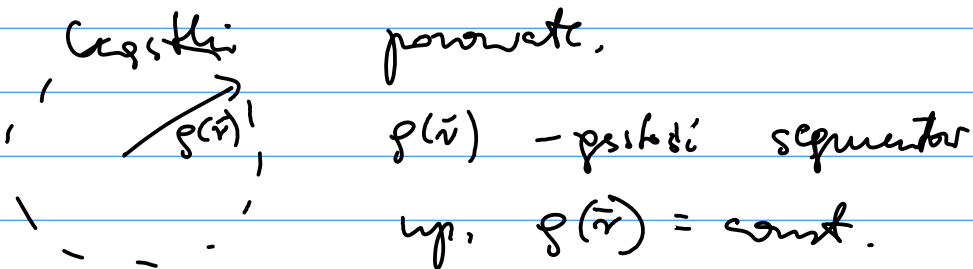 Cząstki porowate.
ρ(r̄) ρ(r̄) - gęstość segmentów
np. ρ(r̄) = const.